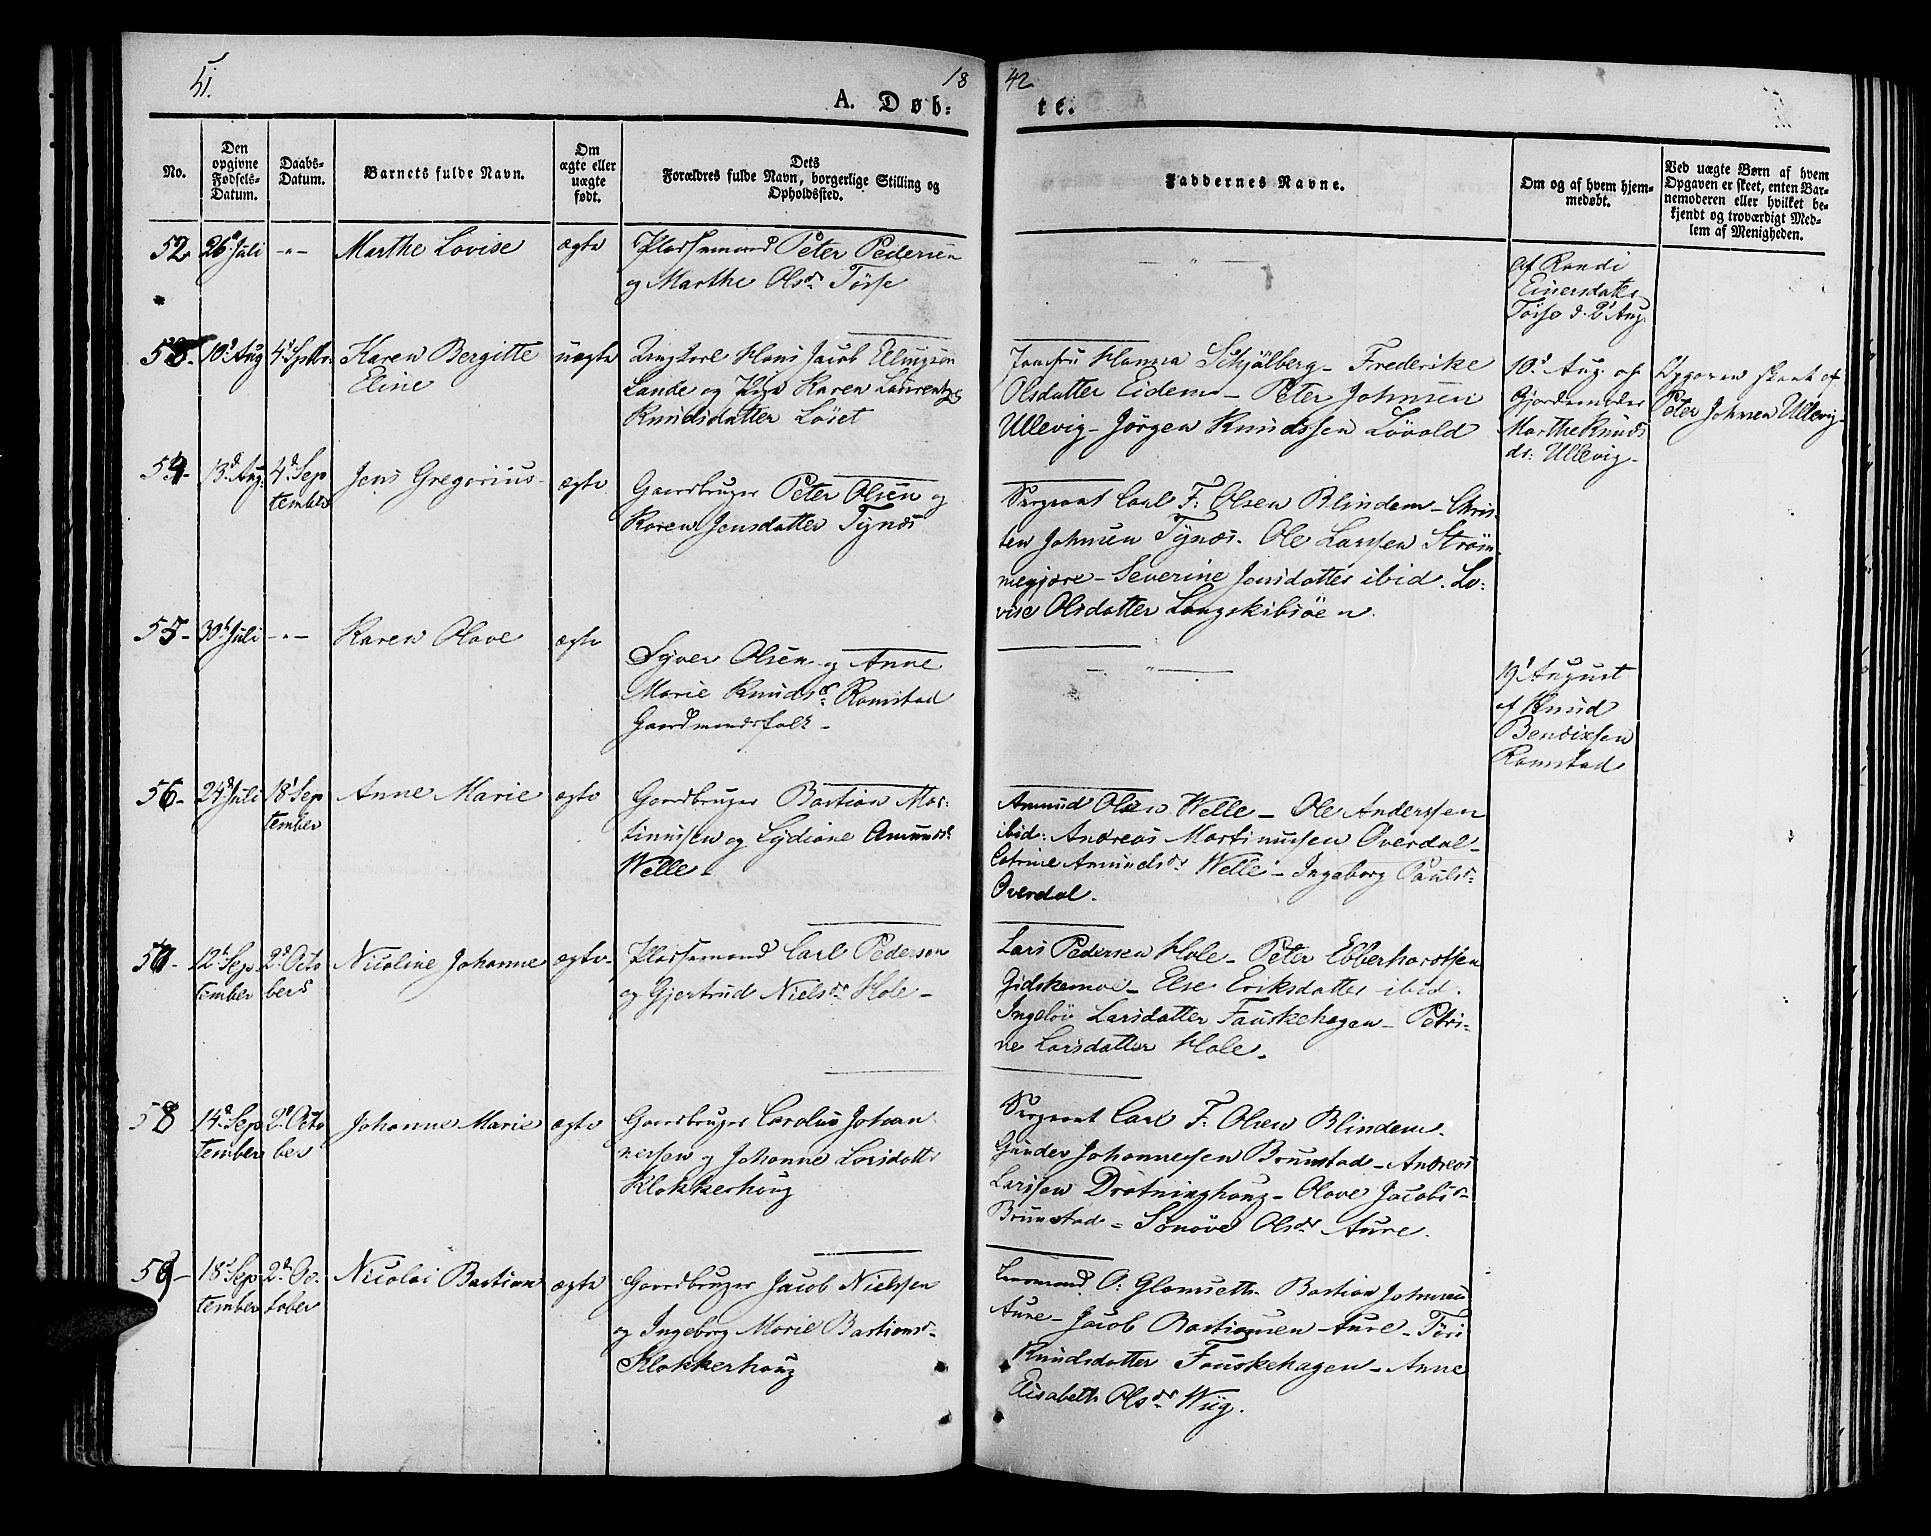 51.
18
42
A. Døb=
te.
No.
Den
opgivne
Fødsels-
Datum.
Daabs-
Datum.
Barnets fulde Navn.
Om
ægte eller
uægte
født.
Dets
Forældres fulde Navn, borgerlige Stilling og
Opholdssted.
Faddernes Navne.
Om og af hvem hjem-
medøbt.
Ved uægte Børn af hvem
Opgaven er skeet, enten Bar-
nemoderen eller hvilket be-
kjendt og troværdigt Med-
lem af Menigheden.
52 26 Juli -"- Marthe Lovise ægte Pladsemand Peter Pedersen
og Marthe Olsdr Tøsse
- " -
af Randi
Einersdatter
Tøsse d. 2 Aug.
53. 10 Aug 4 Septbr. Karen Bergitte uægte Ungkarl Hans Jacob Ellingsen
Eline
Lande og Pige Karen Laurentze
Knudsdatter Løset
Jomfru Hanna Schjølberg - Frederike
Olsdatter Eidem - Peter Johnsen
Ullevig - Jørgen Knudssen Løvold
10 Aug. af
Gjordemoder
Marthe Knuds
dr: Ullevig -
Opgaven skeet af
Peter Johnsen Ullevig -
54 13 Aug: 4 Sep
tember
Jens Gregorius - ægte Gaardbruger Peter Olsen og
Karen Jensdatter Tynæs
Sergeant Carl F. Olsen Blindem - Chris-
ten Johnsen Tynæs. Ole Larssen Strøm-
megjære - Severine Jensdatter ibid. Lo-
vise Olsdatter Langskibsøen.
55 - 30 Juli -"- Karen Olave ægte
Syver Olsen og Anne
Marie Knudsdr. Ramstad
Gaardmandsfolk -
- " -
19 August
af Knud
Bendixsen
Ramstad
56 - 24 Juli 18 Sep
tember
Anne Marie ægte Gaardbruger Bastian Mar-
tinussen og Lydiane Amunds
Welle -
Amund Olsen Welle - Ole Anderssen
ibid: Andreas Martinussen Overdal -
Catrine Amundsdr Welle - Ingeborg Paulsdr.
Overdal.
57 - 12 Sep
tember
2 Octo
bers
Nicoline Johanne ægte - Pladsemand Carl Pedersen
og Gjertrud Nielsdr Hole -
Lars Pedersen Hole - Peter Ebberhardtsen
Gidskemoe - Else Eriksdatter ibid.
Ingeløv Larsdatter Fauskehagen - Petri-
ne Larsdatter Hole -
58 14 Sep
tember
2 Octo
ber
Johanne Marie ægte Gaardbruger Carolus Johan
nessen og Johanne Larsdattr
Klokkerhoug
Sergeant Carl F. Olsen Blindem -
Gunder Johannessen Brunstad - Andreas
Larssen Drotninghoug - Olave Jacobsdr
Brunstad - Sønøve Olsdr Aure.
59 - 18 Sep
tember
2 Oc-
tober
Nicolai Bastian ægte Gaardbruger Jacob Nielssen
og Ingeborg Marie Bastians -
Klokkerhoug
O. Glomseth. Bastian Johnsen
Aure - Jacob Bastiansen Aure - Turi
Knudsdatter Fauskehagen - Anne
Elisabeth Olsdr Wiig.